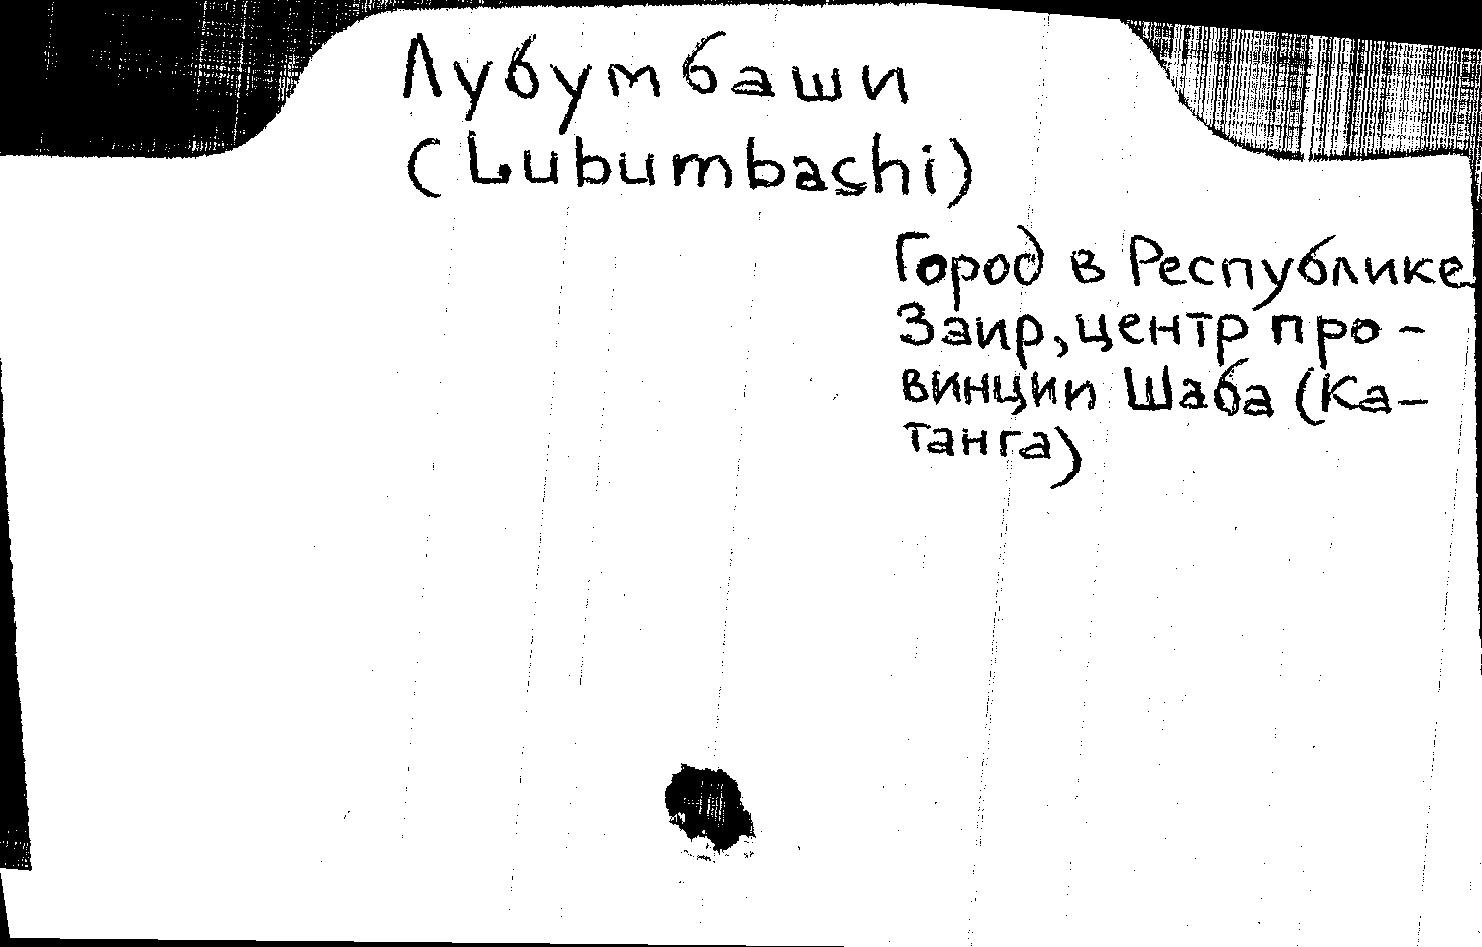 Лубумбаши
(Lubumbashi)
Город в Республике
Заир, центр про-
винции Шаба (Ка-
танга)